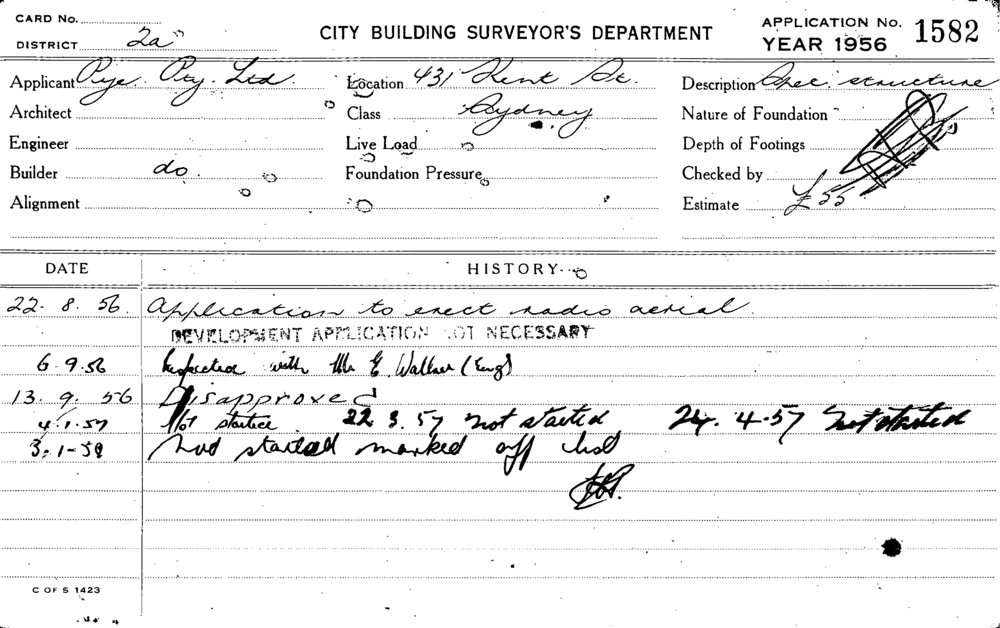 CARD No.
DISTRICT 2a
CITY BUILDING SURVEYOR'S DEPARTMENT
APPLICATION No. 1582
YEAR 1956
Applicant Pye. Pty. Ltd.
Location 431 Kent St.
Description Spec. structure
Architect
Class Sydney
Nature of Foundation
Engineer
Live Load
Depth of Footings
Builder do.
Foundation Pressure
Checked by
Alignment
Estimate £55
DATE HISTORY
22. 8. 56. Application to erect radio aerial.
DEVELOPMENT APPLICATION NOT NECESSARY
6.9.56 Inspection with Mr E. Wallner (Eng)
13. 9. 56 Disapproved
4.1.57 Not started 22 3.57 not started 24. 4.57 not started
3.1-58 not started marked off list
C OF S 1423